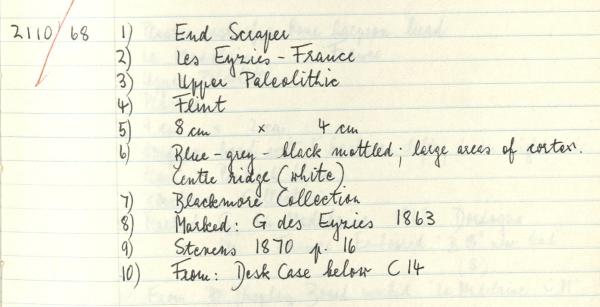 2110/68 1) End Scraper
2) Les Eyzies - France
3) Upper Paleolithic
4) Flint
5) 8 cm x 4 cm
6) Blue-grey-black mottled; large areas of cortex.
Centre ridge (white)
7) Blackmore Collection
8) Marked: G des Eyzies 1863
9) Stevens 1870 p. 16
10) From: Desk Case below C14